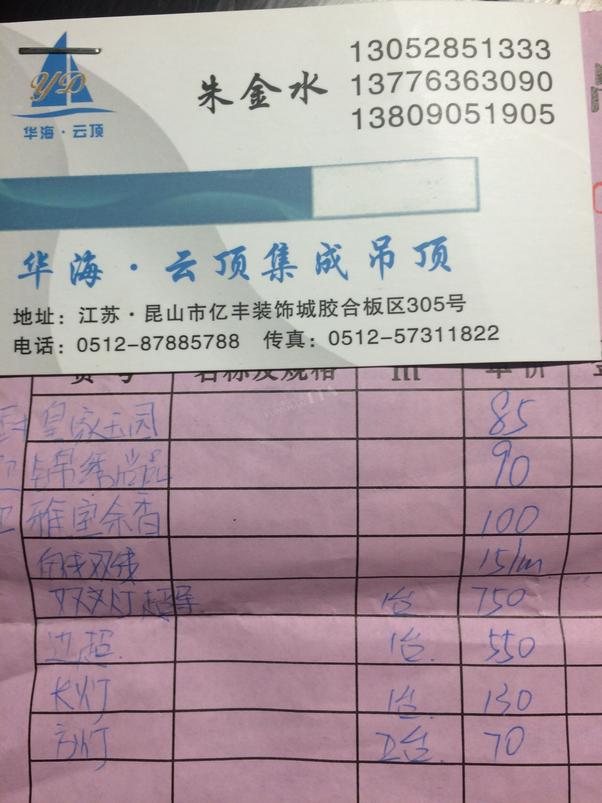 YD
华海·云顶
朱金水
13052851333
13776363090
13809051905
华海·云顶集成吊顶
地址：江苏·昆山市亿丰装饰城胶合板区305号
电话：0512-87885788 传真：0512-57311822
货号 名称及规格 m 单价
皇家玉园 85
锦绣尚品 90
雅室余香 100
白线双线 15/m
双灯超导 1台 750
边超. 1台. 550
长灯 1台. 130
方灯 2台. 70